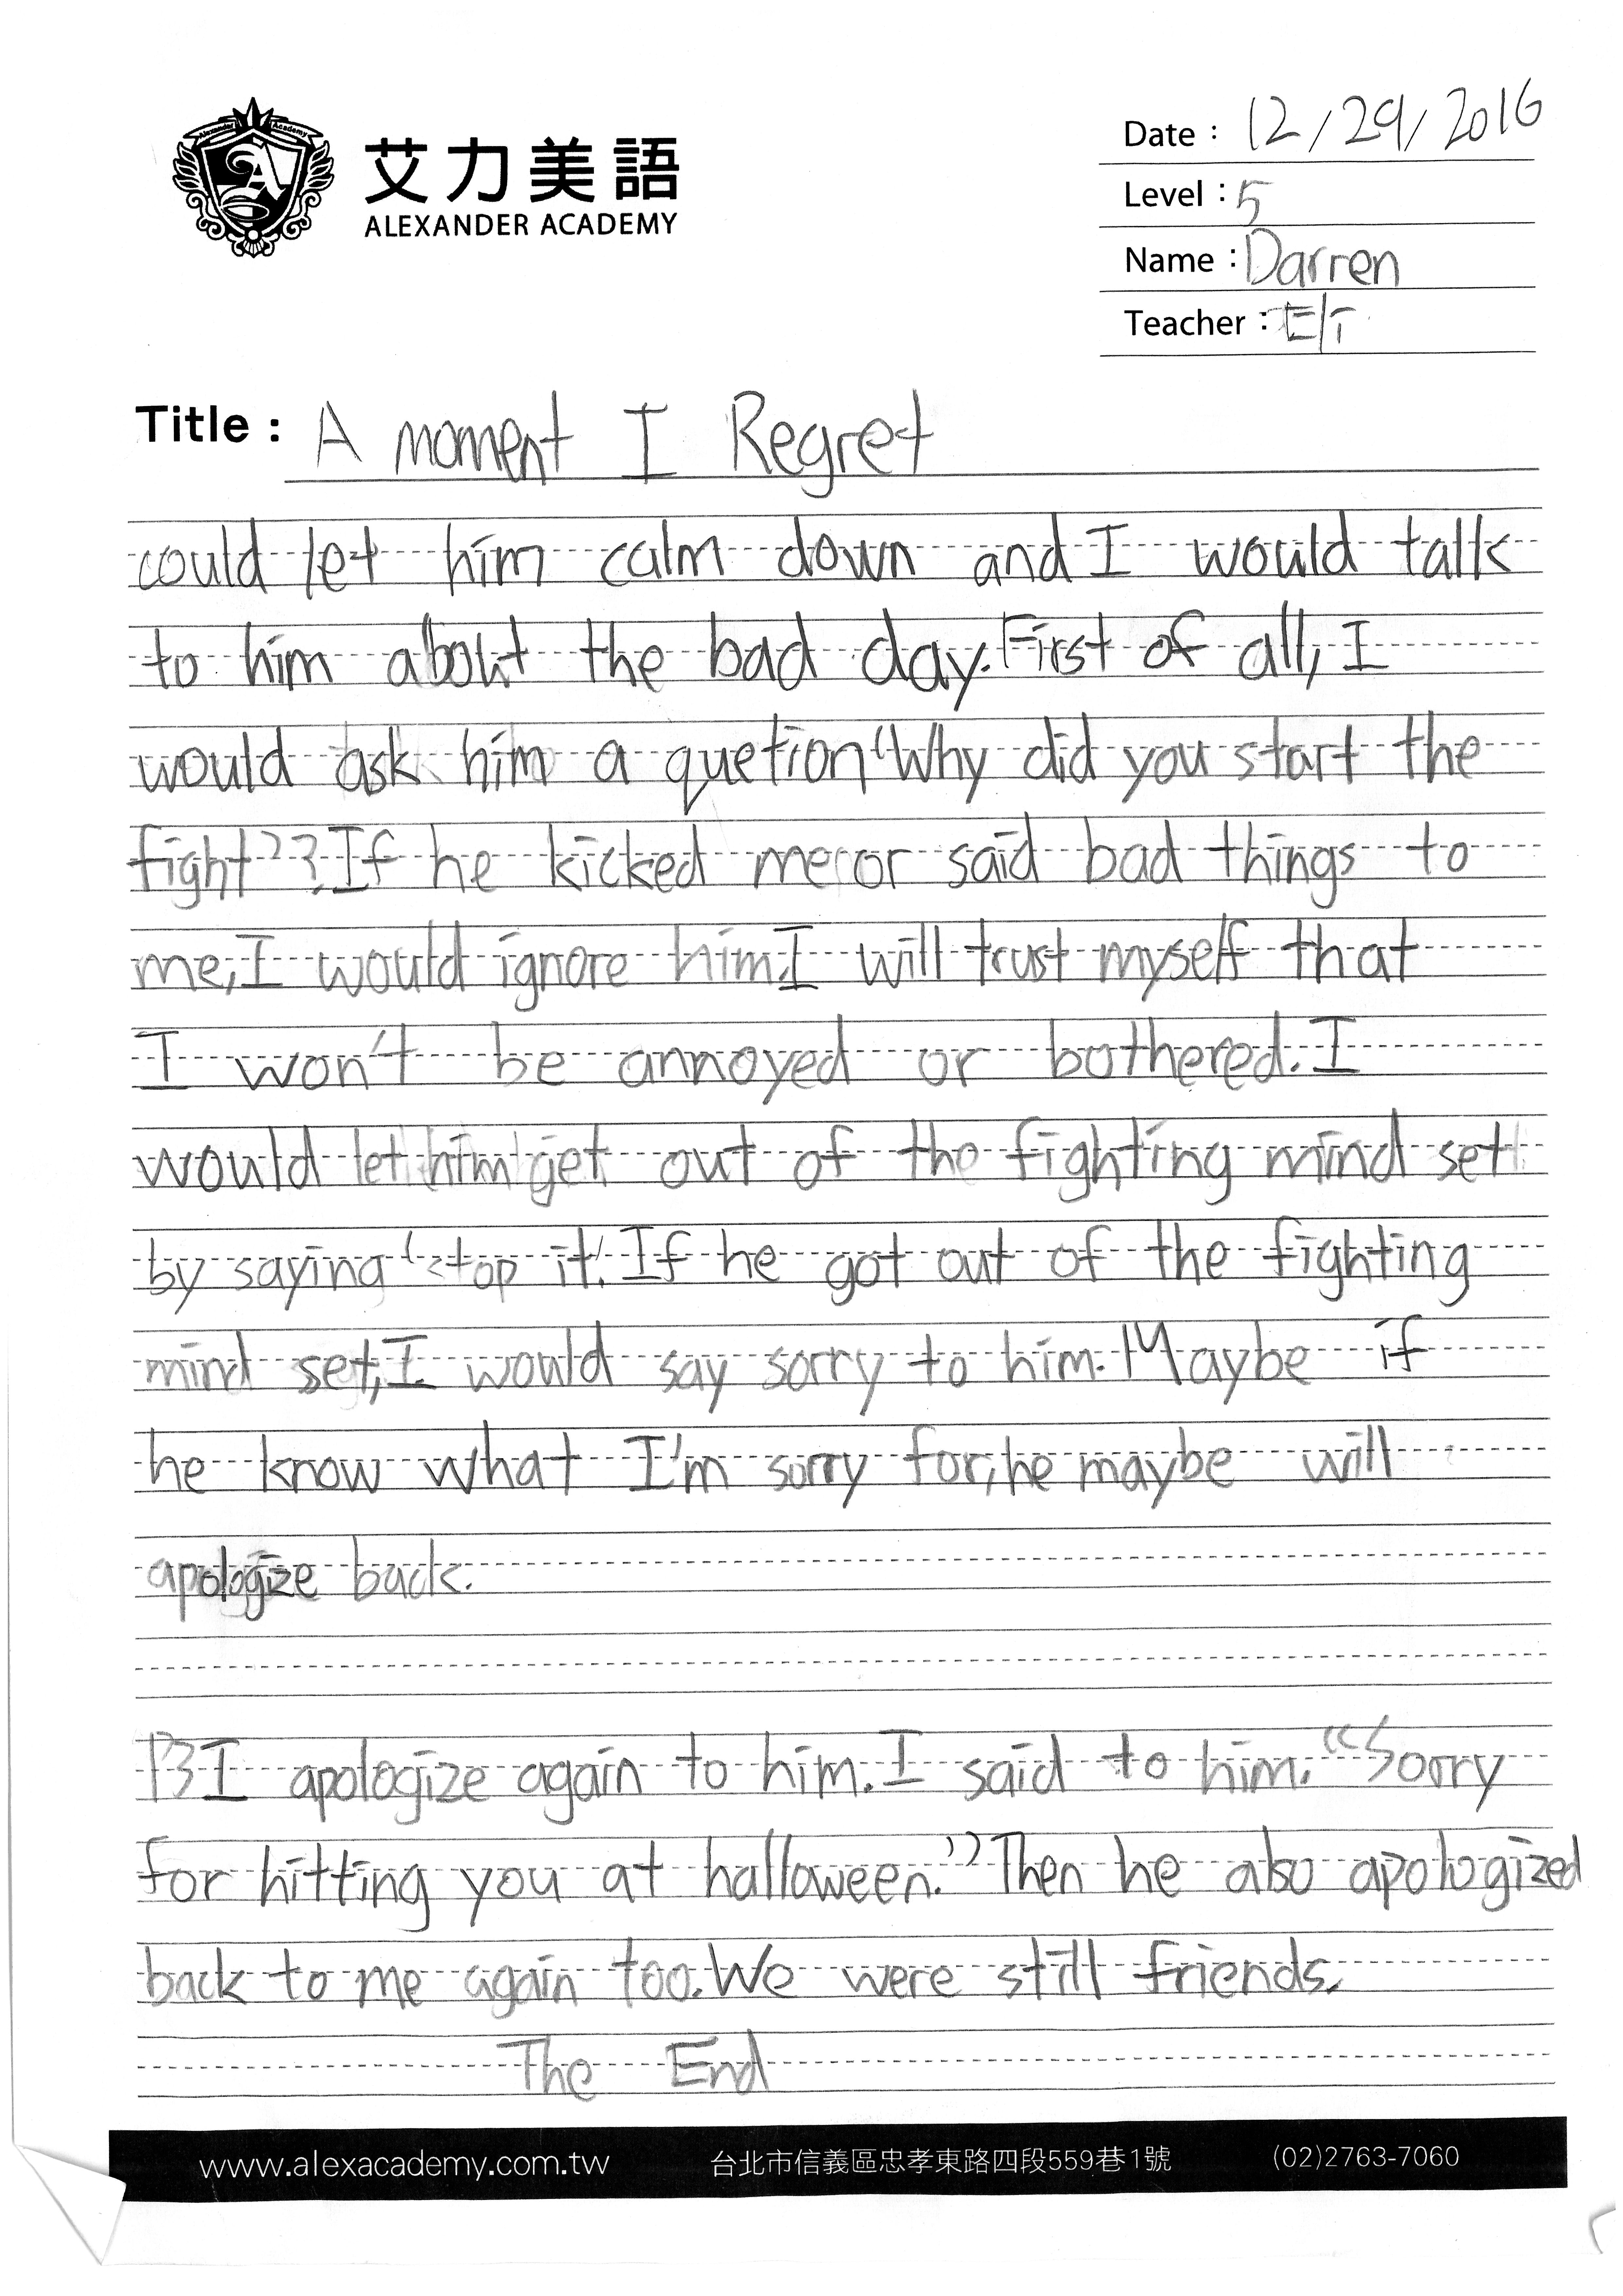 Alexander Academy
艾力美語
ALEXANDER ACADEMY
Date : 12/29/2016
Level : 5
Name : Darren
Teacher :
Title : A moment I Regret
could let him calm down and I would talk
to him about the bad day. First of all, I
would ask him a quetion "Why did you start the
fight"? If he kicked me or said bad things to
me, I would ignore him. I will trust myself that
I won't be annoyed or bothered. I
would let him get out of the fighting mind set
by saying 'stop it'. If he got out of the fighting
mind set, I would say sorry to him. Maybe if
he know what I'm sorry for, he maybe will
apologize back.
P3 I apologize again to him. I said to him. "Sorry
for hitting you at halloween." Then he also apologized
back to me again too. We were still friends.
The End
www.alexacademy.com.tw 台北市信義區忠孝東路四段559巷1號 (02)2763-7060